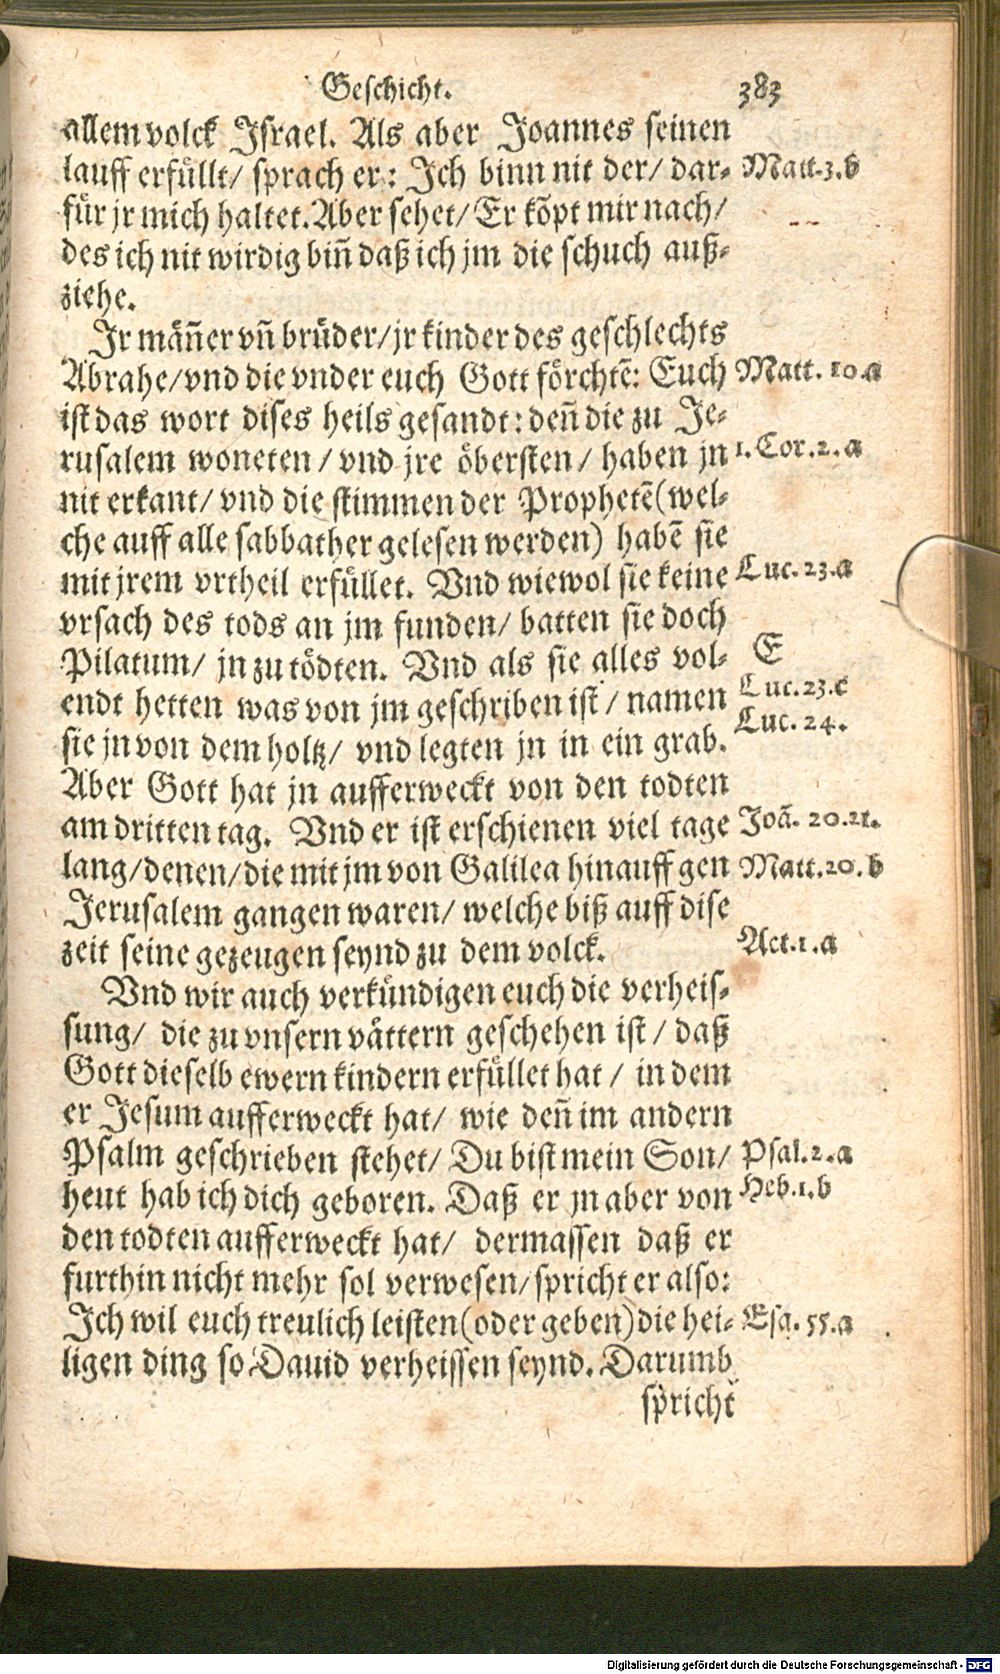 Geschicht. 383
allem volck Israel. Als aber Joannes seinen
lauff erfüllt/ sprach er: Ich binn nit der/ dar- Matt.3.b
für jr mich haltet. Aber sehet/ Er kõpt mir nach/
des ich nit wirdig biñ daß ich jm die schuch auß-
ziehe.
Ir mäñer vñ brüder/ jr kinder des geschlechts
Abrahe/ vnd die vnder euch Gott förchtẽ: Euch Matt. 10.a
ist das wort dises heils gesandt: deñ die zu Je-
rusalem woneten/ vnd jre öbersten/ haben jn 1. Cor.2.a
nit erkant/ vnd die stimmen der Prophetẽ (wel-
che auff alle sabbather gelesen werden) habẽ sie
mit jrem vrtheil erfüllet. Vnd wiewol sie keine Luc.23.a
vrsach des tods an jm funden/ batten sie doch
Pilatum/ jn zu tödten. Vnd als sie alles vol- E
endt hetten was von jm geschriben ist/ namen Luc.23.c
sie jn von dem holtz/ vnd legten jn in ein grab. Luc.24.
Aber Gott hat jn aufferweckt von den todten
am dritten tag. Vnd er ist erschienen viel tage Joã. 20.21.
lang/ denen/ die mit jm von Galilea hinauff gen Matt.20.b
Jerusalem gangen waren/ welche biß auff dise
zeit seine gezeugen seynd zu dem volck. Act.1.a
Vnd wir auch verkündigen euch die verheis-
sung/ die zu vnsern vättern geschehen ist/ daß
Gott dieselb ewern kindern erfüllet hat/ in dem
er Jesum aufferweckt hat/ wie deñ im andern
Psalm geschrieben stehet/ Du bist mein Son/ Psal.2.a
heut hab ich dich geboren. Daß er jn aber von Heb.1.b
den todten aufferweckt hat/ dermassen daß er
furthin nicht mehr sol verwesen/ spricht er also:
Ich wil euch treulich leisten (oder geben) die hei- Esa.55.a
ligen ding so Dauid verheissen seynd. Darumb
spricht
Digitalisierung gefördert durch die Deutsche Forschungsgemeinschaft - DFG